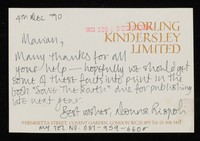 4th Dec '90
DORLING
KINDERSLEY
LIMITED
Marian,
Many thanks for all
your help — hopefully we should get
some of these facts into print in the
book "Save The Earth" we are publishing
next year.
Best wishes,
HENRIETTA STREET COVENT GARDEN LONDON
MY TEL NO. 081-959-6605